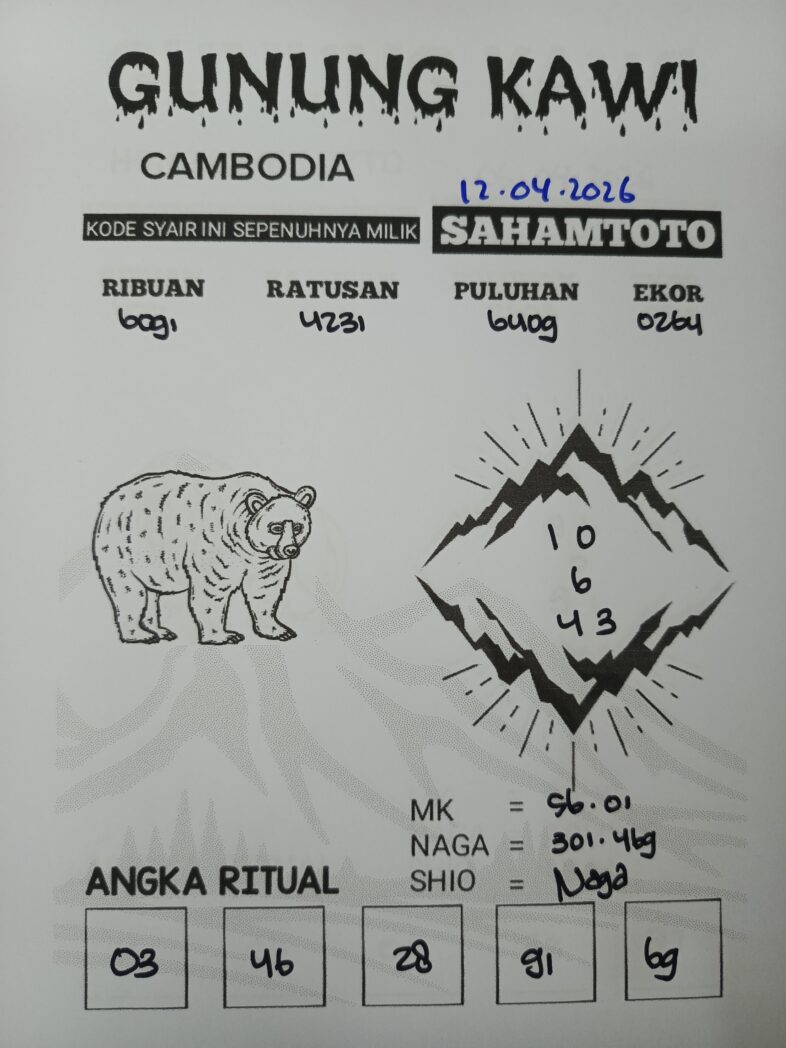 GUNUNG KAWI
CAMBODIA
12.04.2026
KODE SYAIR INI SEPENUHNYA MILIK SAHAMTOTO
RIBUAN RATUSAN PULUHAN EKOR
6091 4231 6409 0264
1 0
6
4 3
MK = 96.01
NAGA = 301.469
SHIO = Naga
ANGKA RITUAL
03 46 28 91 69